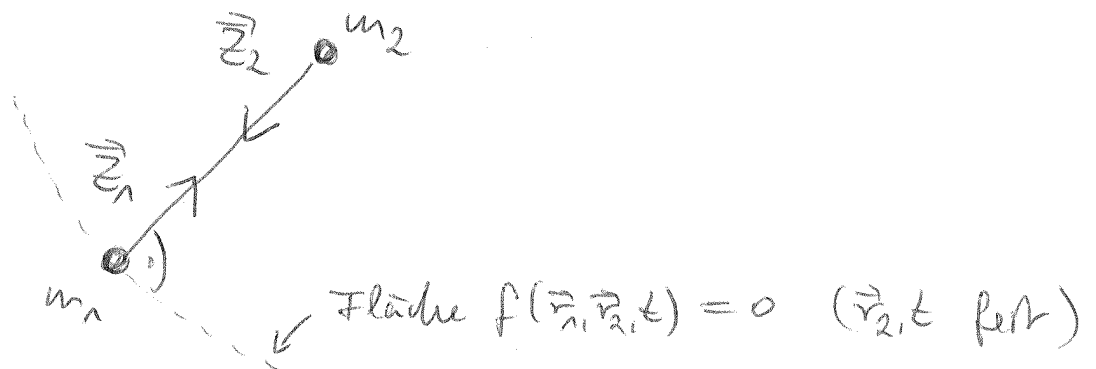 Z⃗₂ m₂
Z⃗₁
m₁
Fläche f(r⃗₁, r⃗₂, t) = 0 (r⃗₂, t fest)